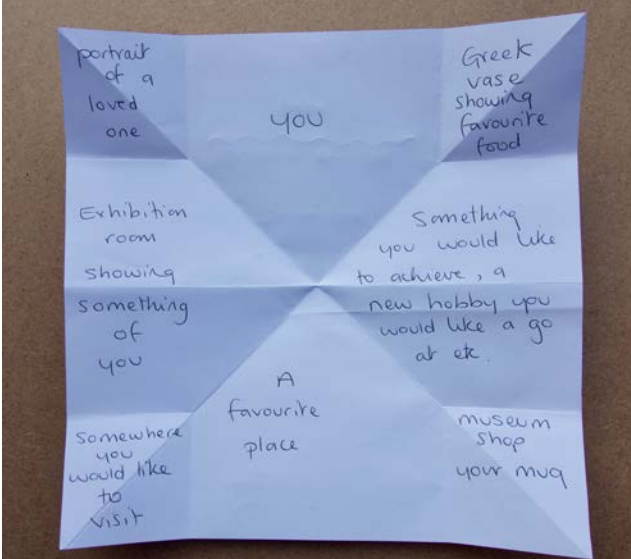 portrait
of a
loved
one
you
Greek
vase
showing
favourite
food
Exhibition
room
showing
something
of
you
Something
you would like
to achieve, a
new hobby you
would like a go
at etc.
Somewhere
you
would like
to
visit
A
favourite
place
museum
shop
your mug